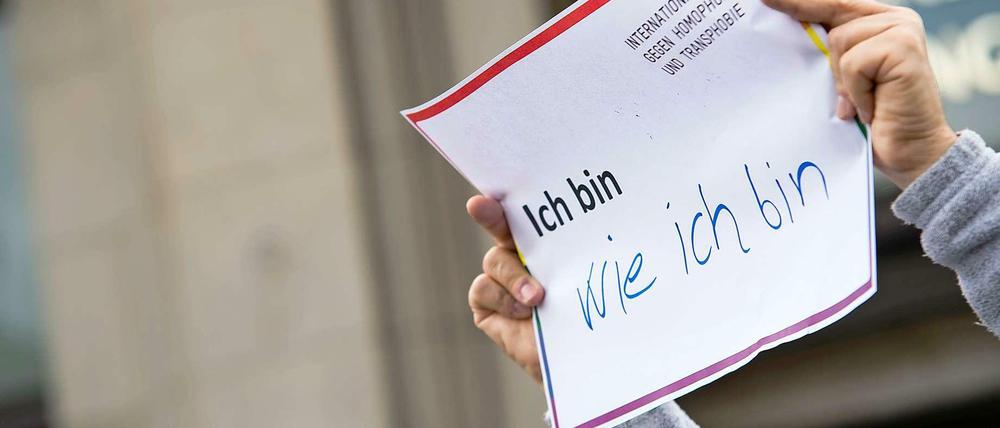 INTERNATION
GEGEN HOMOPHO
UND TRANSPHOBIE
Ich bin
wie ich bin